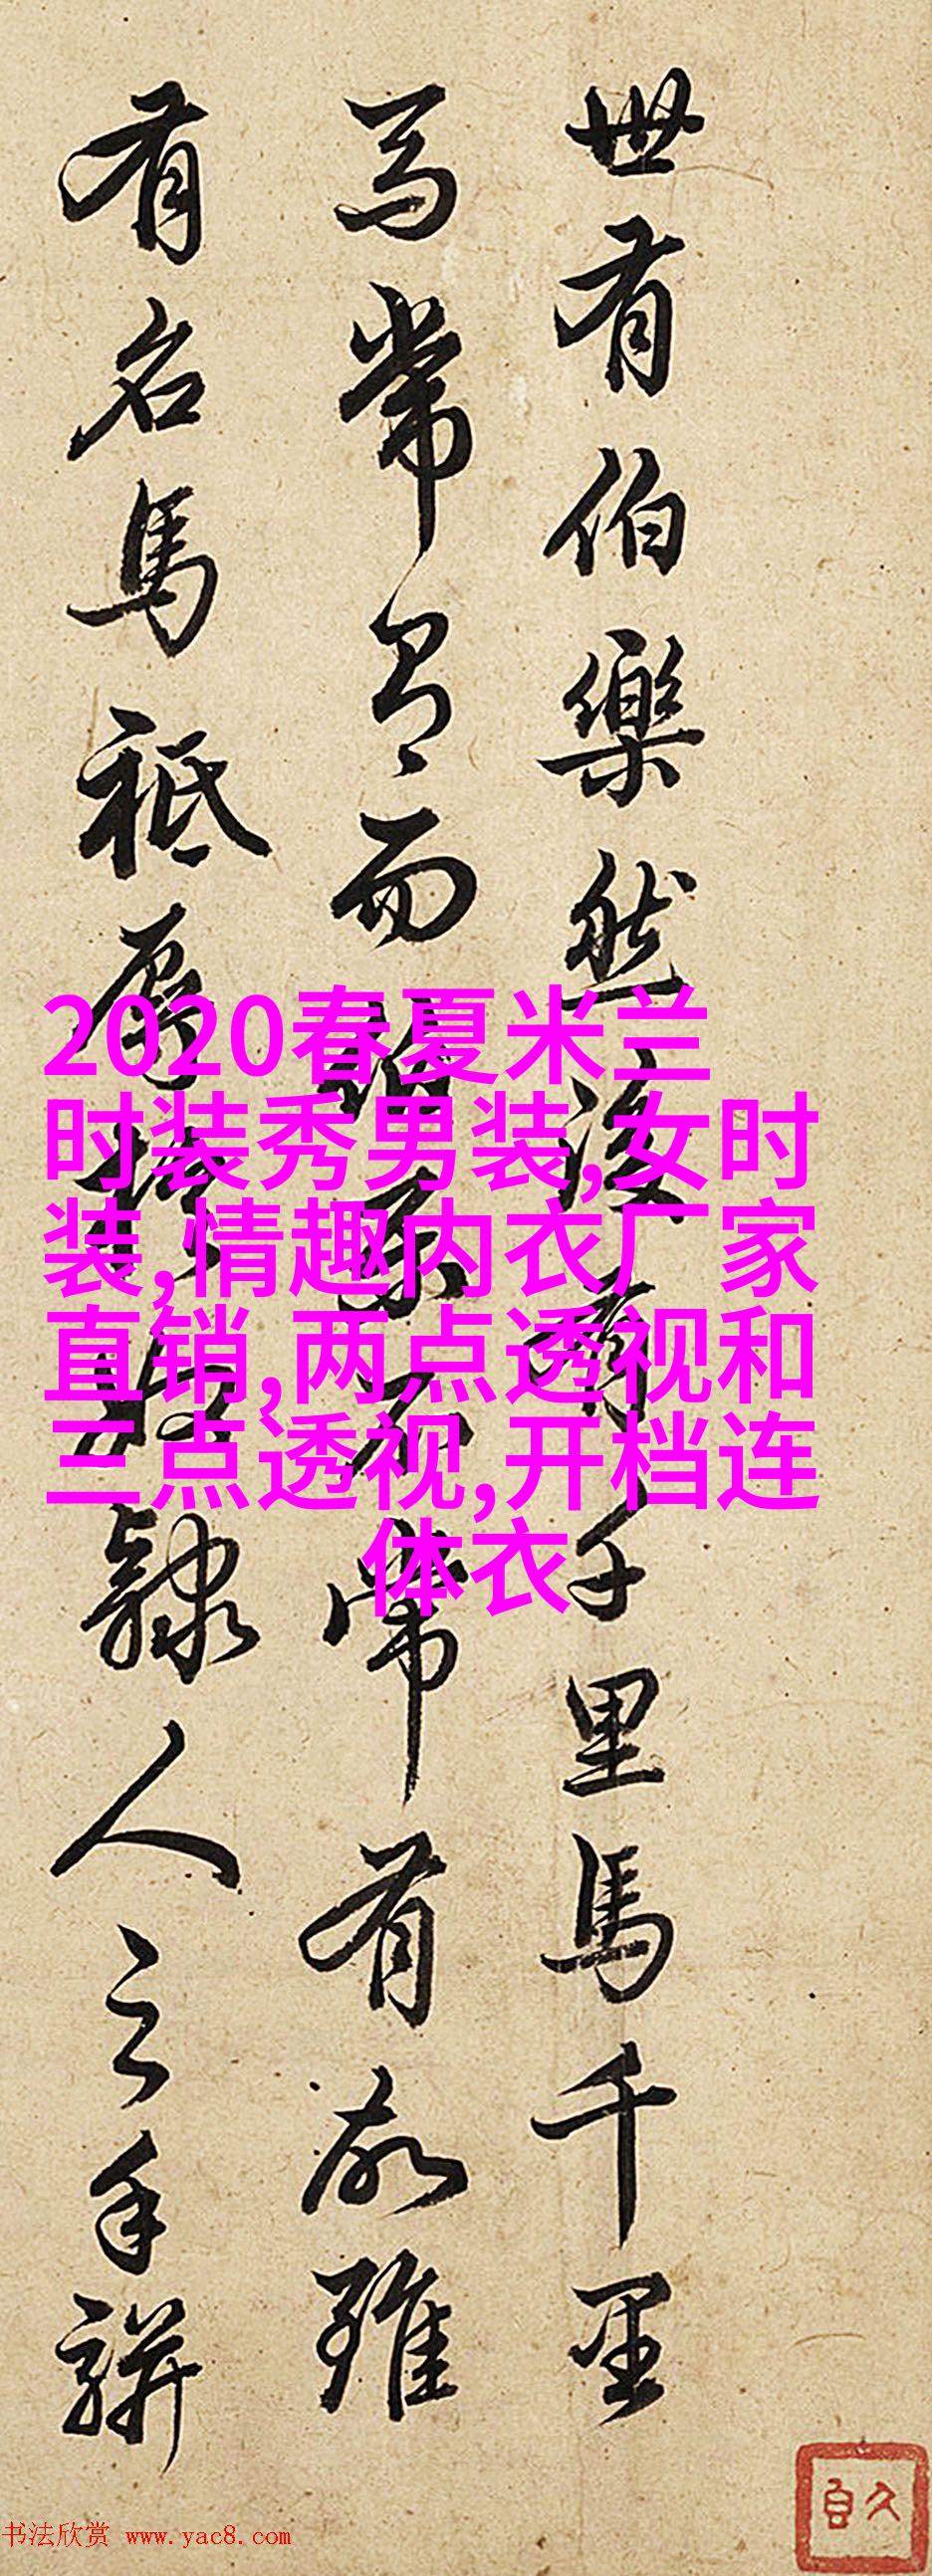 世有伯樂然後有千里馬千里
馬常有而伯樂不常有故雖
有名馬祗辱於奴隸人之手駢
2020春夏米兰
时装秀男装,女时
装,情趣内衣厂家
直销,两点透视和
三点透视,开档连
体衣
书法欣赏 www.yac8.com